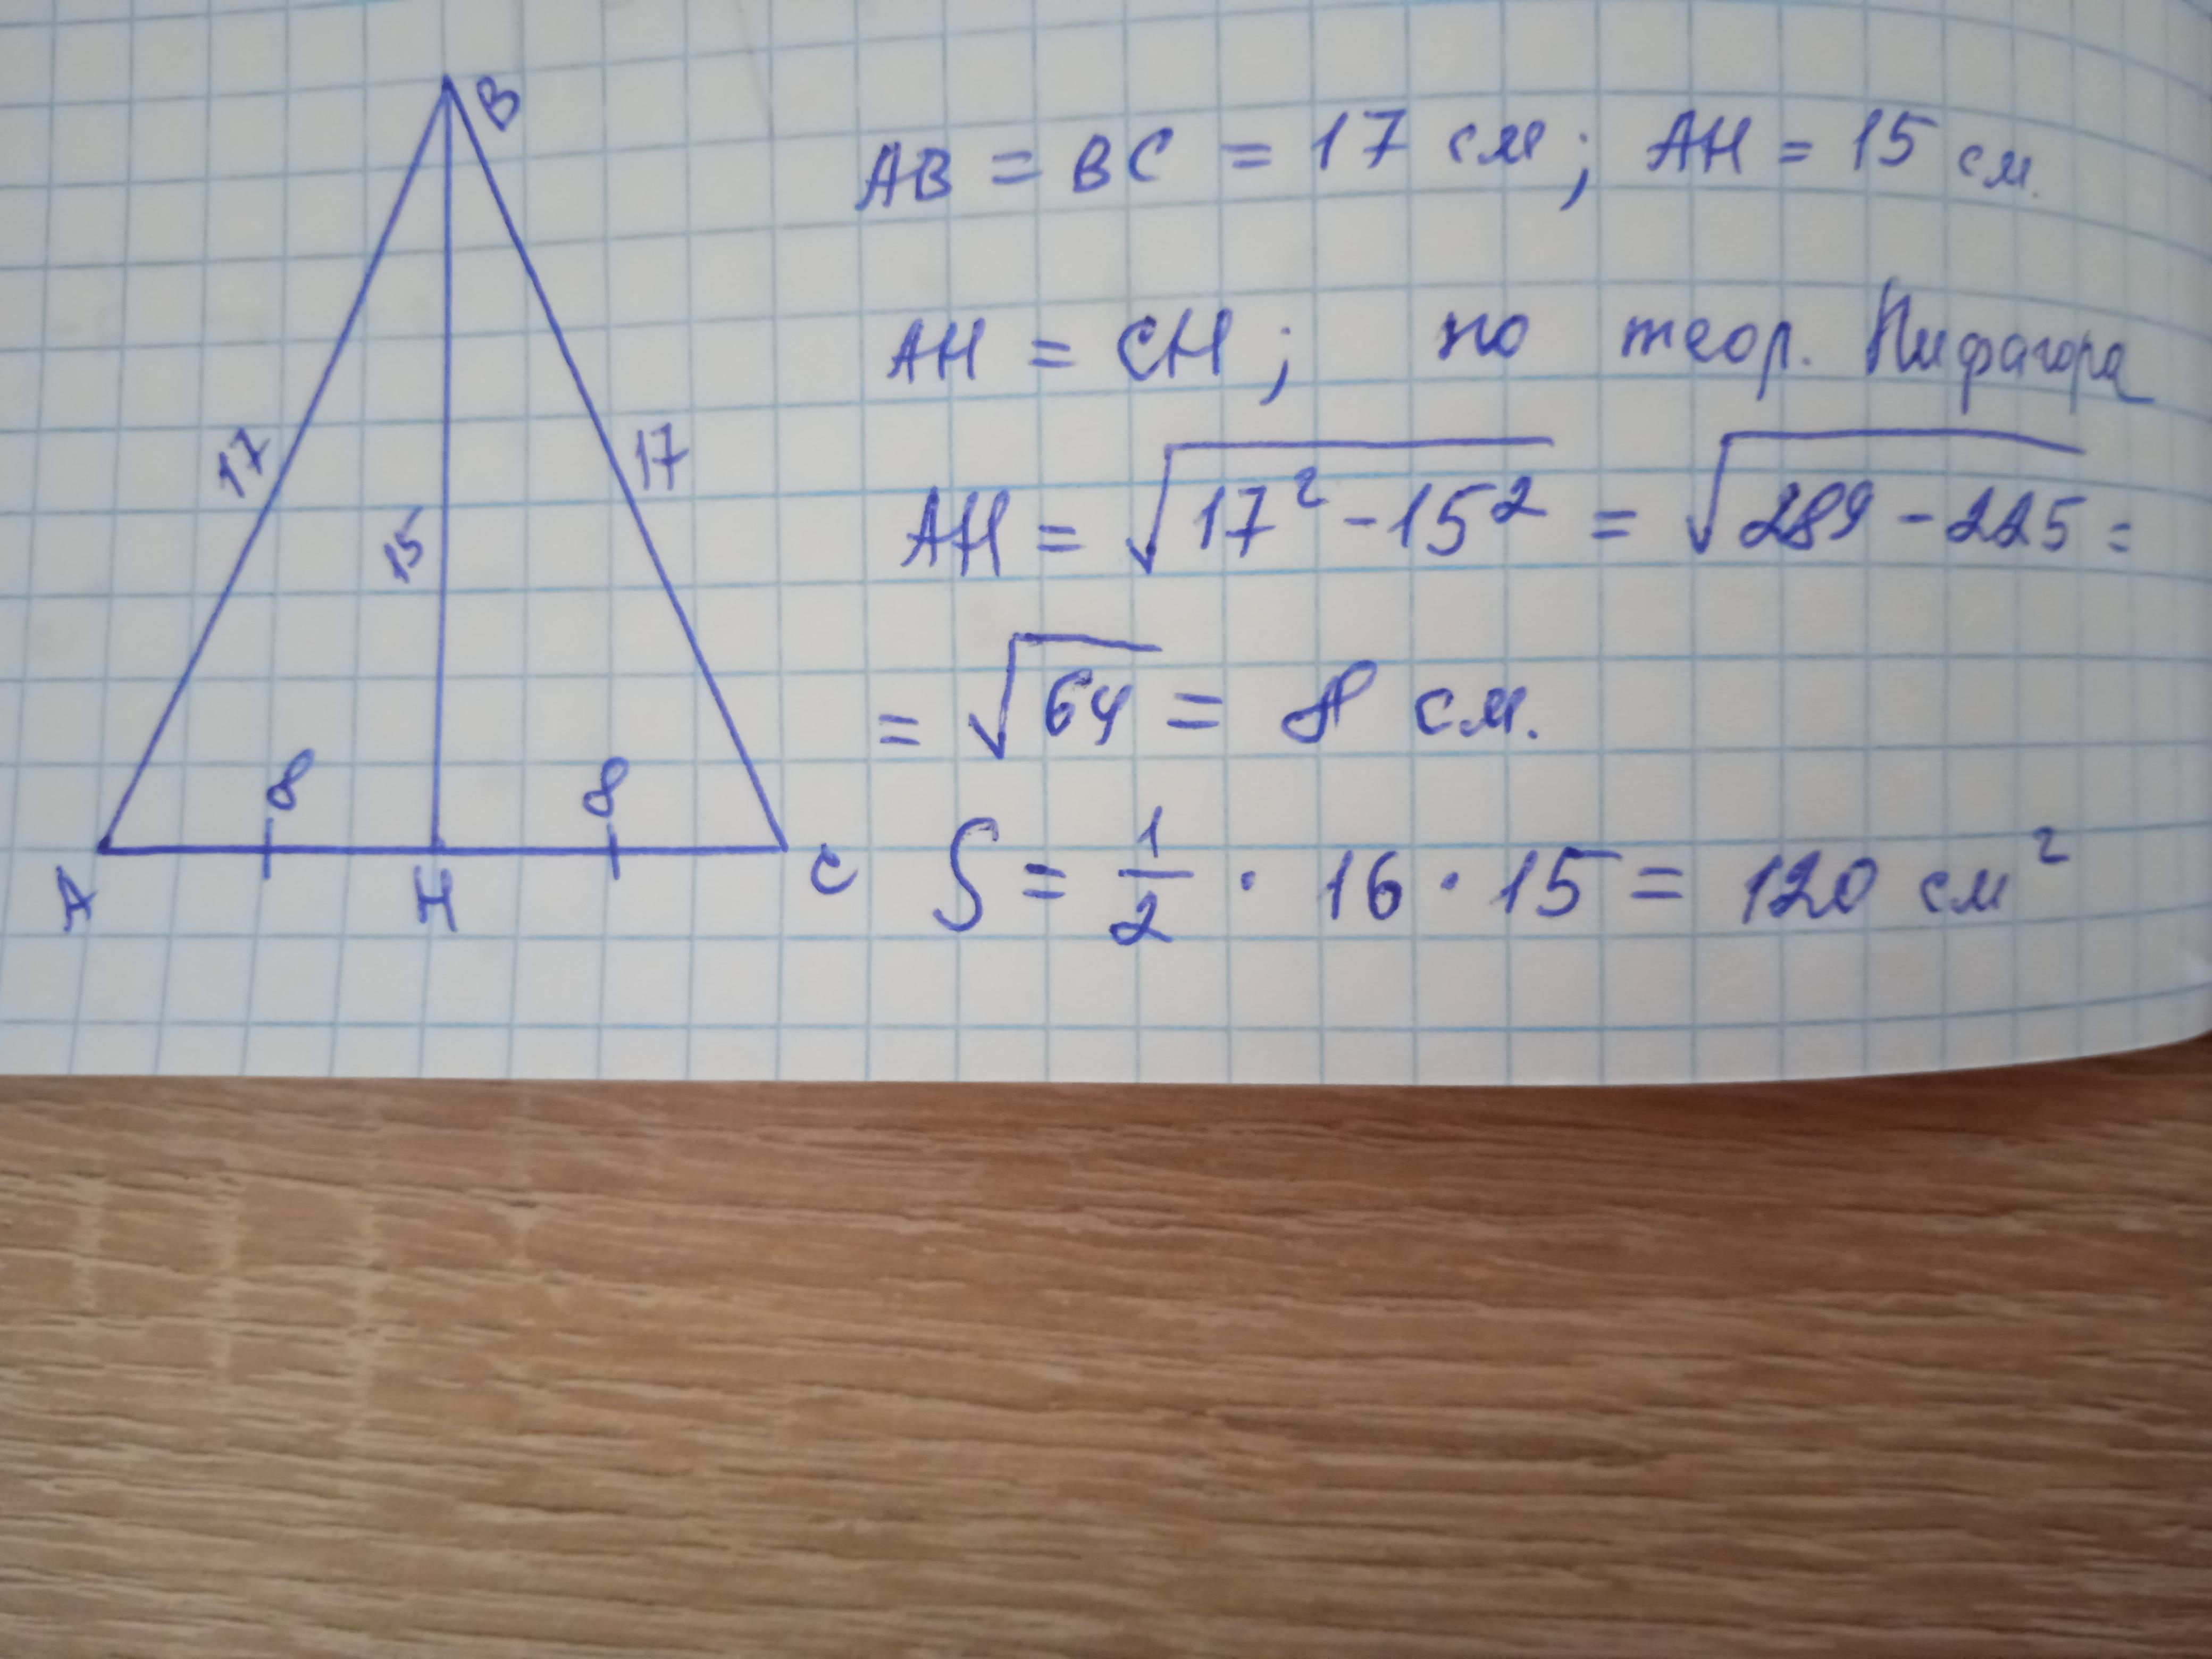 B
17
17
15
8
8
A
H
C
AB = BC = 17 см; AH = 15 см.
AH = CH; по теор. Пифагора
AH = √(17² - 15²) = √(289 - 225) =
= √64 = 8 см.
S = 1/2 · 16 · 15 = 120 см²